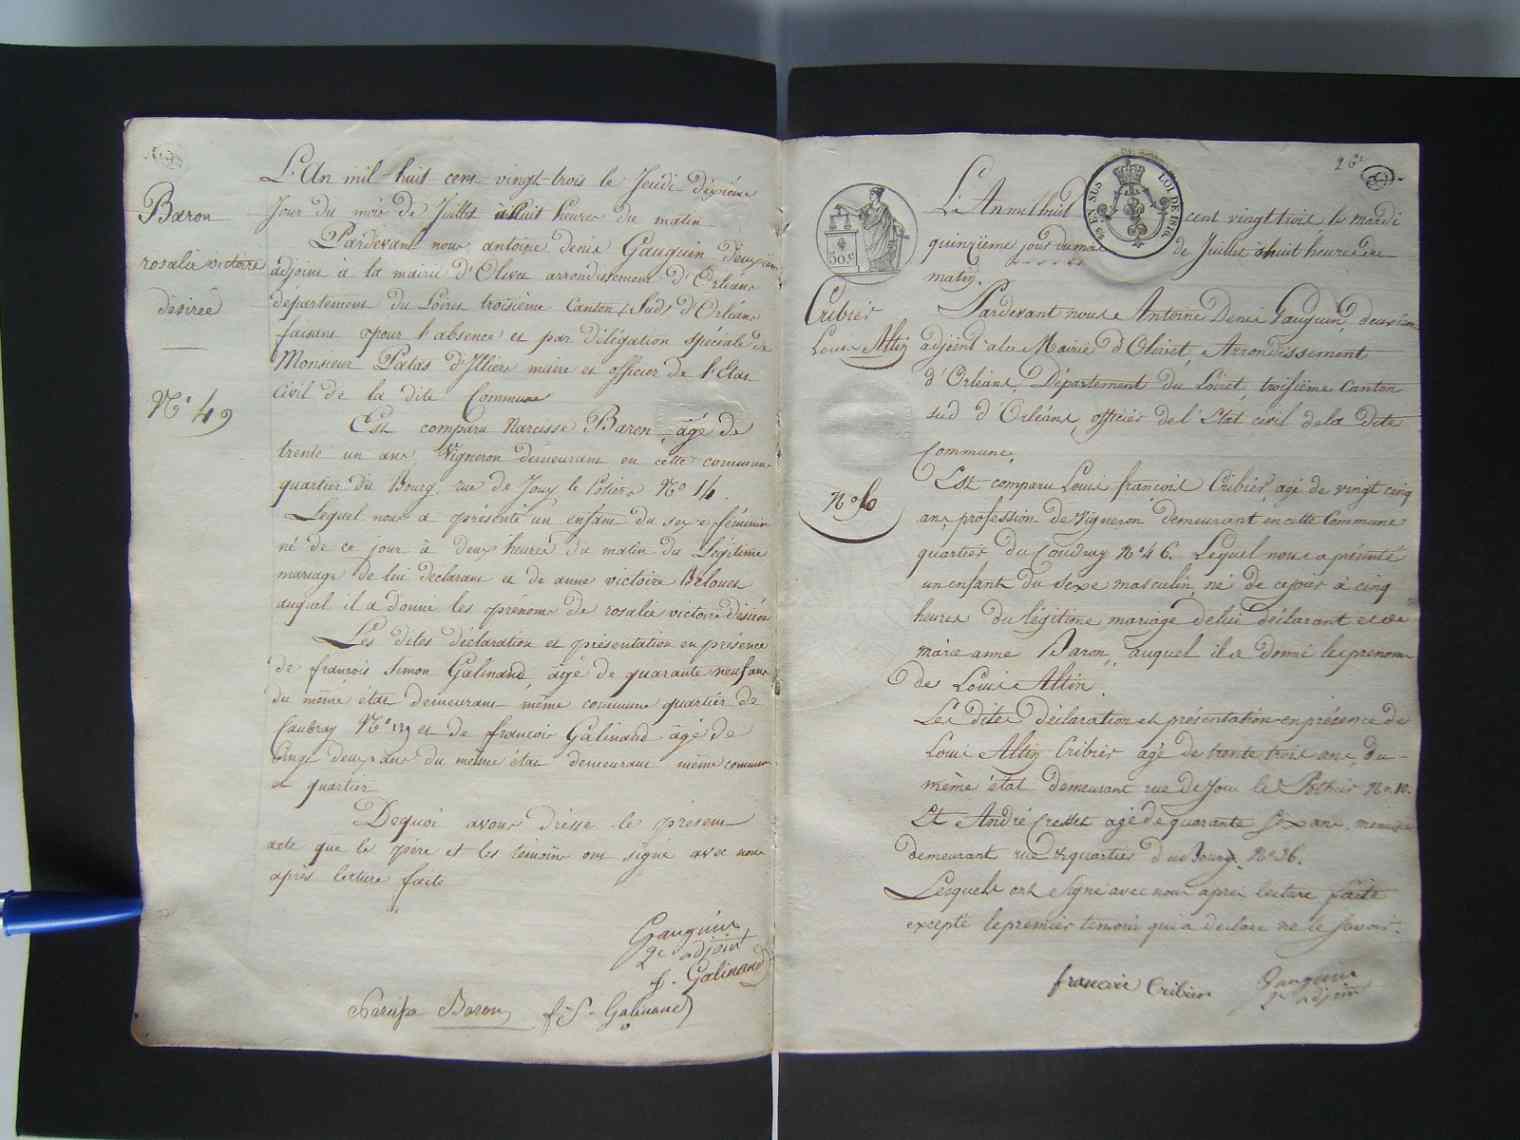 Baron
rosalie victoire
désirée
N.º 49
L'An mil huit cent vingt trois le Jeudi dixième
Jour du mois de Juillet à huit heures du matin
Pardevant nous antoine denis Gauguin deuxième
adjoint à la mairie d'Olivet arrondissement d'Orléans
département du Loiret troisième Canton Sud d'Orléans
faisant pour l'absence et par délégation spéciale de
Monsieur Patas d'Illiers maire et officier de l'Etat
Civil de la dite Commune
Est comparu Narcisse Baron âgé de
trente un ans Vigneron demeurant en cette commune
quartier du Bourg rue de Jouy le Potier N.º 14.
Lequel nous a présenté un enfant du sexe féminin
né de ce jour à deux heures du matin du Légitime
mariage de lui déclarant et de anne victoire
auquel il a donné les prénoms de rosalie victoire désirée
Les dites déclaration et présentation en présence
de françois Simon Galinand âgé de quarante neuf ans
du même état demeurant même commune quartier de
Caubray N.º et de françois Galinand âgé de
vingt deux ans du même état demeurant même commune
et quartier
Dequoi avons dressé le présent
acte que le père et les témoins ont signé avec nous
après lecture faite
Gauguin
2e adjoint
f. Galinand
Narcisse Baron f. S. Galinand
26e
50 c
50 EN SUS LOI DE 1816
Cribier
Louis Altin
N.º 50
L'An mil huit cent vingt trois le mardi
quinzième jour du mois de Juillet à huit heures du
matin.
Pardevant nous Antoine Denis Gauguin, deuxieme
adjoint à la Mairie d'Olivet, Arrondissement
d'Orléans, Département du Loiret, troisième Canton
sud d'Orléans, officier de l'Etat civil de la dite
Commune,
Est comparu Louis françois Cribier, agé de vingt cinq
ans, profession de Vigneron demeurant en cette Commune
quartier du Coudray N.º 46. Lequel nous a présenté
un enfant du sexe masculin, né de ce jour à cinq
heures du légitime mariage de lui déclarant et de
marie anne Baron, auquel il a donné les prenoms
de Louis Altin.
Les dites déclaration et présentation en présence de
Louis Altin Cribier agé de trente trois ans, du
même état demeurant rue de Joui le Pothier N.º 10.
Et André Cresset agé de quarante six ans,
demeurant rue & quartier du Bourg. N.º 36.
Lesquels ont signé avec nous après lecture faite
excepté le premier temoin qui a déclaré ne le savoir.
francois Cribier
Gauguin
2e adjoint